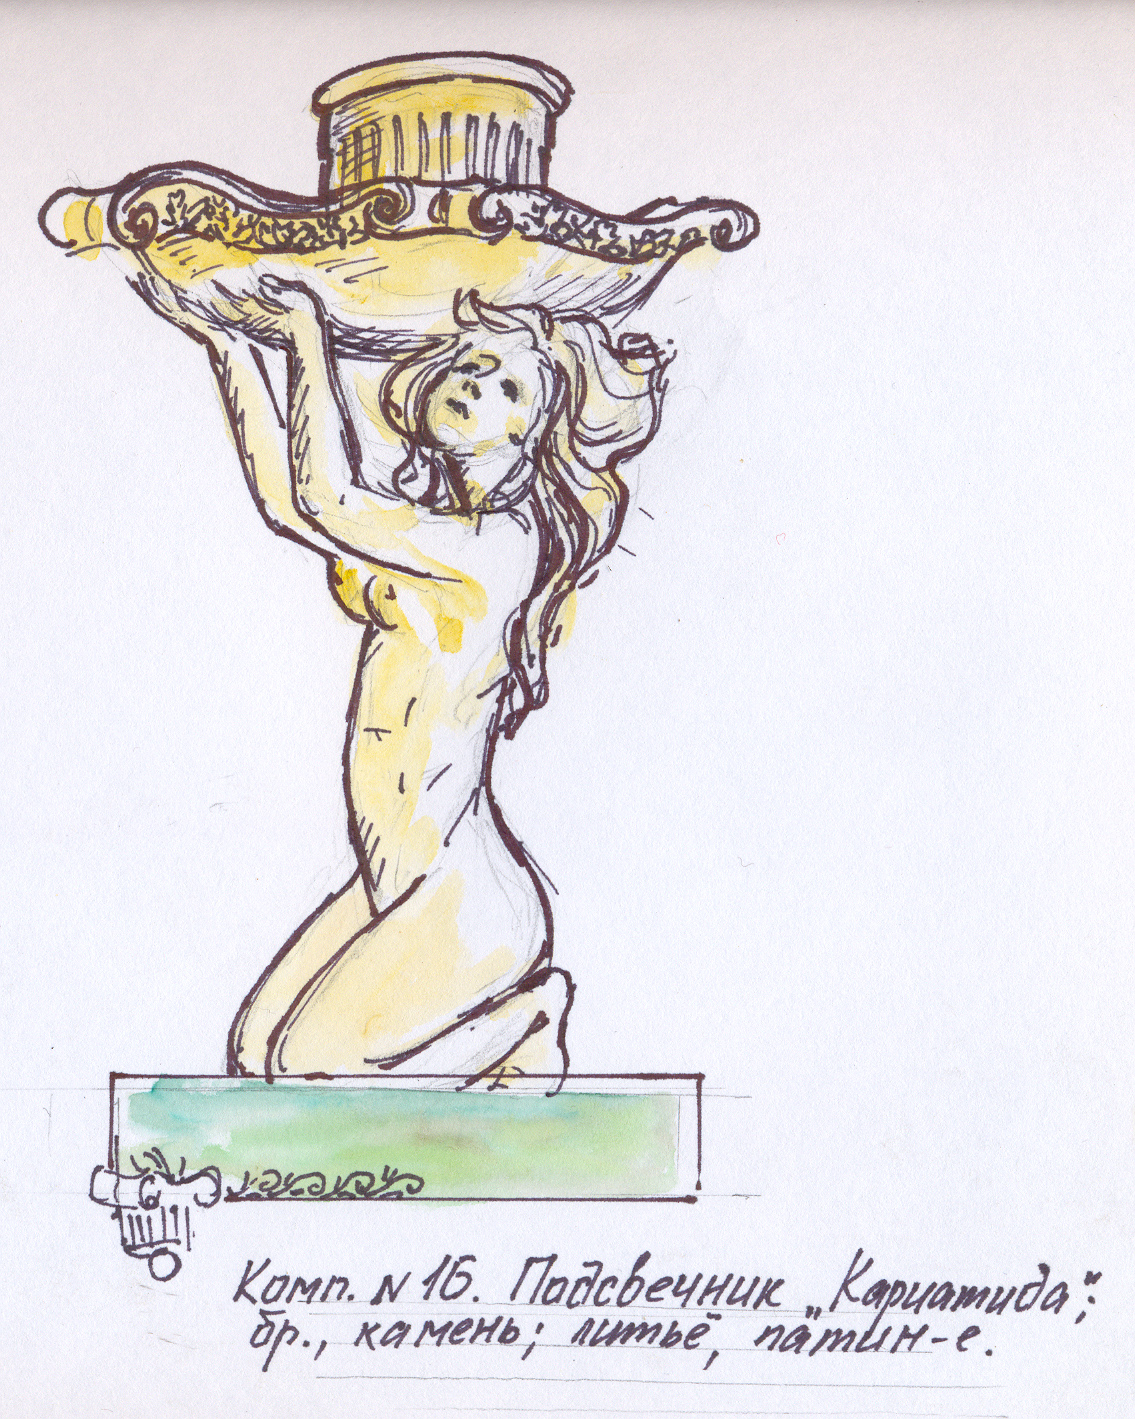 Комп. N 16. Подсвечник „Кариатида";
бр., камень; литьё, патин-е.